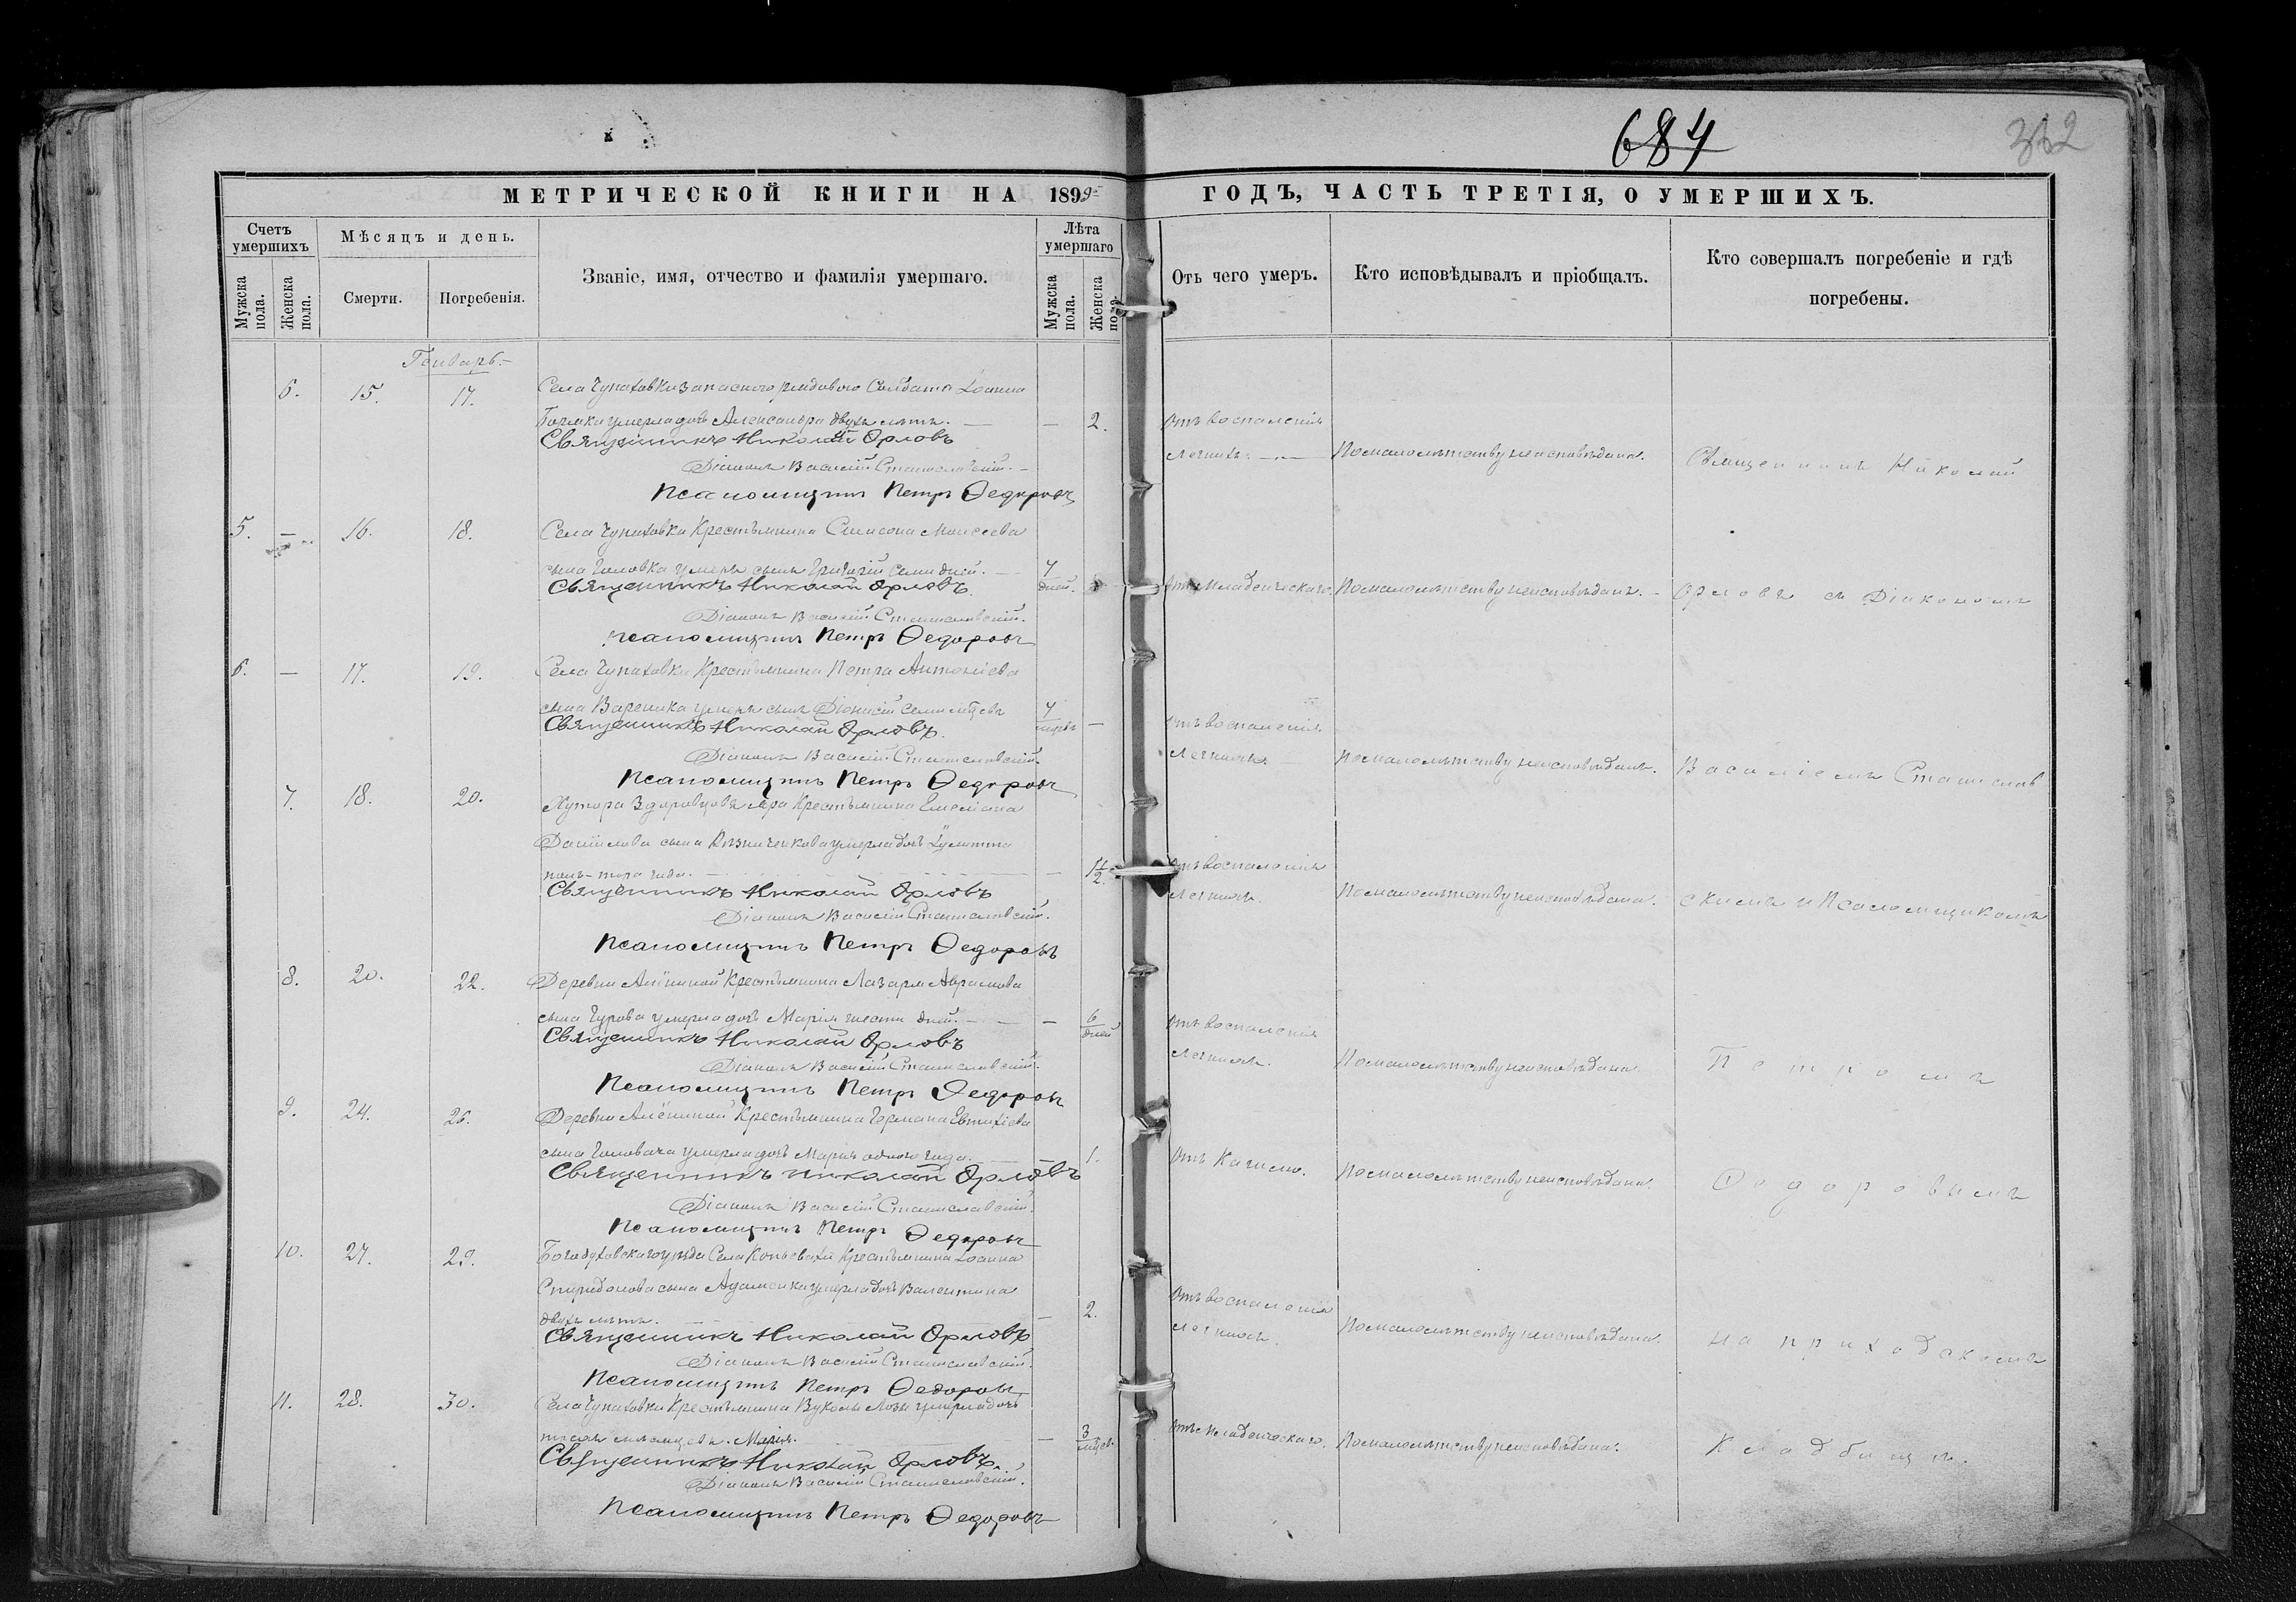 684
362
МЕТРИЧЕСКОЙ КНИГИ НА 1899 ГОДЪ, ЧАСТЬ ТРЕТІЯ, О УМЕРШИХЪ.
Счетъ умершихъ
Мужска пола.
Женска пола.
Мѣсяцъ и день.
Смерти.
Погребенія.
Званіе, имя, отчество и фамилія умершаго.
Лѣта умершаго
Мужска пола.
Женска пола.
Отъ чего умеръ.
Кто исповѣдывалъ и пріобщалъ.
Кто совершалъ погребеніе и гдѣ погребены.
Генварь
6. 15. 17. Села Чупаховки запаснаго рядоваго Солдата Іоанна
умерла дочь Александра двухъ лѣтъ. — — 2. Отъ воспаленія
Священникъ Николай Орловъ
легкихъ. По малолѣтству неисповѣдана. Священникъ Николай
Діаконъ Василій Станиславскій.
Псаломщикъ Петръ Федоровъ
5. — 16. 18. Села Чупаховки Крестьянина Симеона Моисеева
сына Головка умеръ сынъ Григорій семи дней. 7 дней. Отъ Младенческаго. По малолѣтству неисповѣданъ. Орловъ съ Діакономъ
Священникъ Николай Орловъ.
Діаконъ Василій Станиславскій.
Псаломщикъ Петръ Федоровъ
6. — 17. 19. Села Чупаховки Крестьянина Петра Антоніева
сына Вареника умеръ сынъ Діонисій семи мѣсцевъ 7 — Отъ воспаленія
Священникъ Николай Орловъ.
легкихъ. По малолѣтству неисповѣданъ. Василіемъ Станислав
Діаконъ Василій Станиславскій.
Псаломщикъ Петръ Федоровъ
7. 18. 20. Хутора Крестьянина Емеліана
Даніилова сына умерла дочь Іулитта
полъ-тора года. — 1 1/2. Отъ воспаленія
Священникъ Николай Орловъ
легкихъ. По малолѣтству неисповѣдана. скимъ и Псаломщикомъ
Діаконъ Василій Станиславскій.
Псаломщикъ Петръ Федоровъ
8. 20. 22. Деревни Крестьянина Лазаря Аврамова
сына Гурова умерла дочь Марія шести дней. — 6 дней Отъ воспаленія
Священникъ Николай Орловъ
легкихъ. По малолѣтству неисповѣдана. Петромъ
Діаконъ Василій Станиславскій.
Псаломщикъ Петръ Федоровъ
9. 24. 26. Деревни Крестьянина Германа Евтихіева
сына Головача умерла дочь Марія одного года. 1. Отъ Кашлю. По малолѣтству неисповѣдана. Федоровымъ
Священникъ Николай Орловъ
Діаконъ Василій Станиславскій.
Псаломщикъ Петръ Федоровъ
10. 27. 29. Богодуховскаго уѣзда Села Крестьянина Іоанна
Спиридонова сына Адаменка умерла дочь Валентина
двухъ лѣтъ. — 2. Отъ воспаленія
Священникъ Николай Орловъ
легкихъ. По малолѣтству неисповѣдана. на приходскомъ
Діаконъ Василій Станиславскій.
Псаломщикъ Петръ Федоровъ
11. 28. 30. Села Чупаховки Крестьянина Вуколы Лозы умерла дочь
трехъ мѣсяцевъ. Марія. — 3 мѣсц. Отъ Младенческаго. По малолѣтству неисповѣдана. Кладбищѣ.
Священникъ Николай Орловъ.
Діаконъ Василій Станиславскій.
Псаломщикъ Петръ Федоровъ